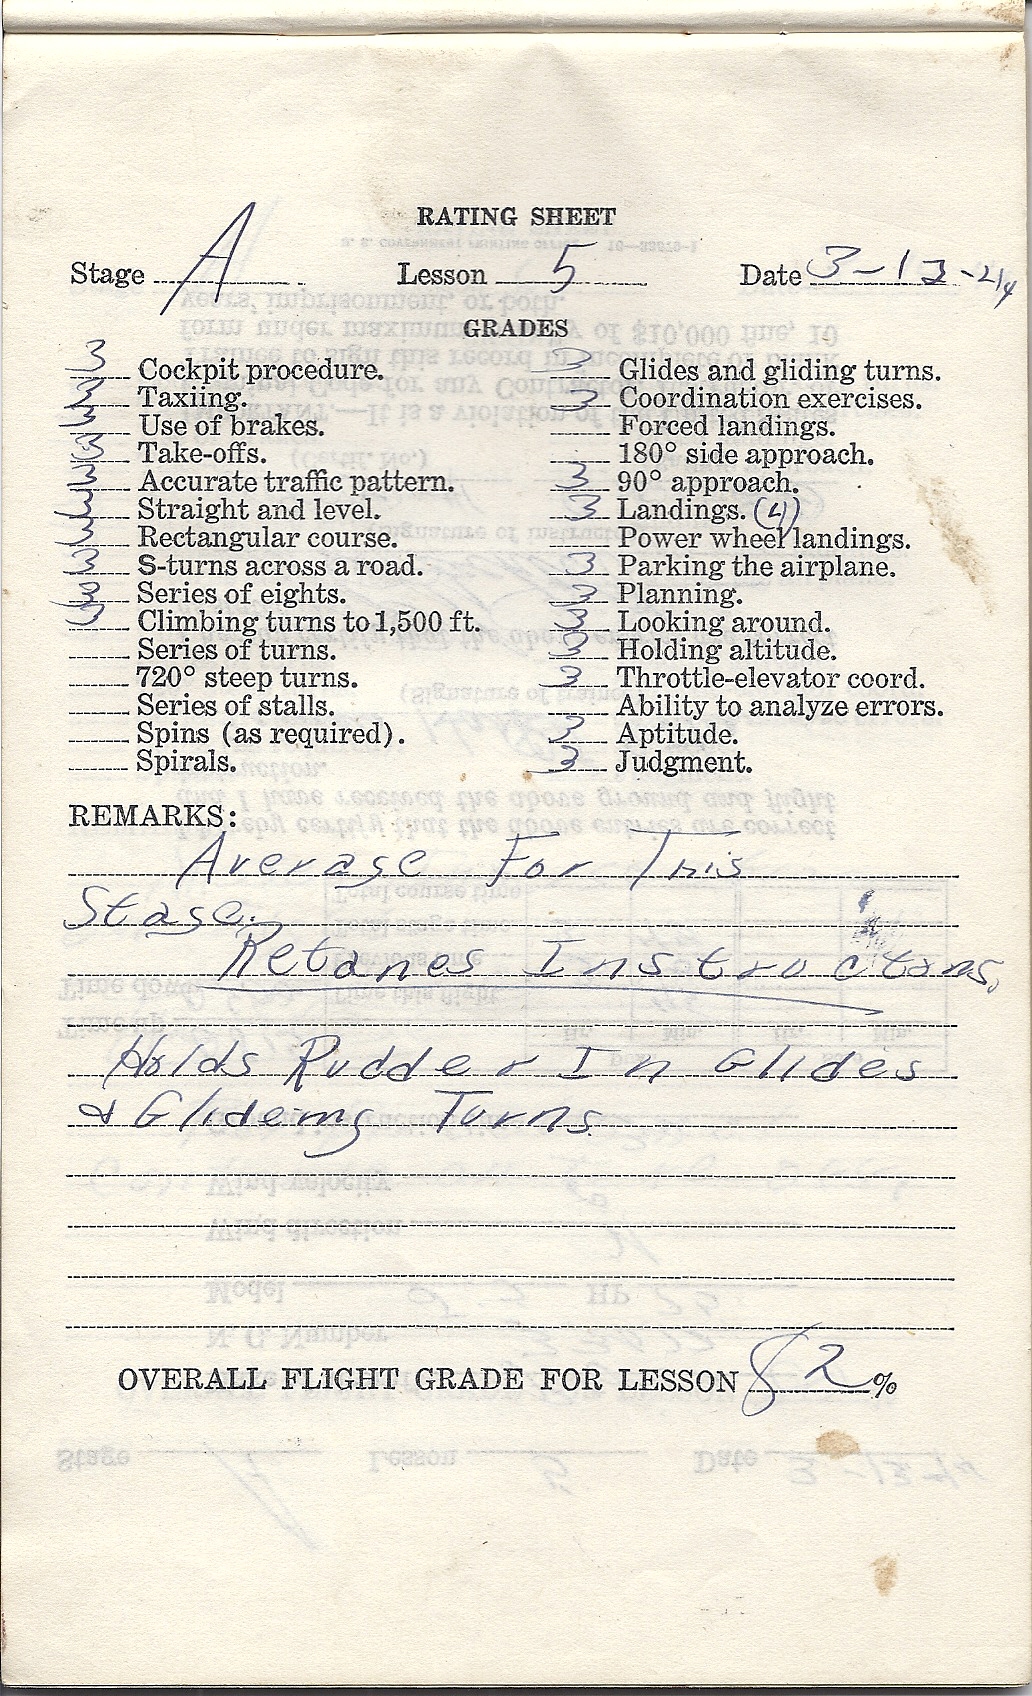 RATING SHEET
Stage A Lesson 5 Date 3-13-44
GRADES
3 Cockpit procedure. 3 Glides and gliding turns.
3 Taxiing. 3 Coordination exercises.
3 Use of brakes. Forced landings.
3 Take-offs. 180° side approach.
3 Accurate traffic pattern. 3 90° approach.
3 Straight and level. 3 Landings. (4)
3 Rectangular course. Power wheel landings.
3 S-turns across a road. 3 Parking the airplane.
3 Series of eights. 3 Planning.
3 Climbing turns to 1,500 ft. 3 Looking around.
Series of turns. 3 Holding altitude.
720° steep turns. 3 Throttle-elevator coord.
Series of stalls. Ability to analyze errors.
Spins (as required). 3 Aptitude.
Spirals. 3 Judgment.
REMARKS:
Average For This
Stage.
Retanes Instructons.
Holds Rudder In Glides
& Glideing Turns.
OVERALL FLIGHT GRADE FOR LESSON 82 %